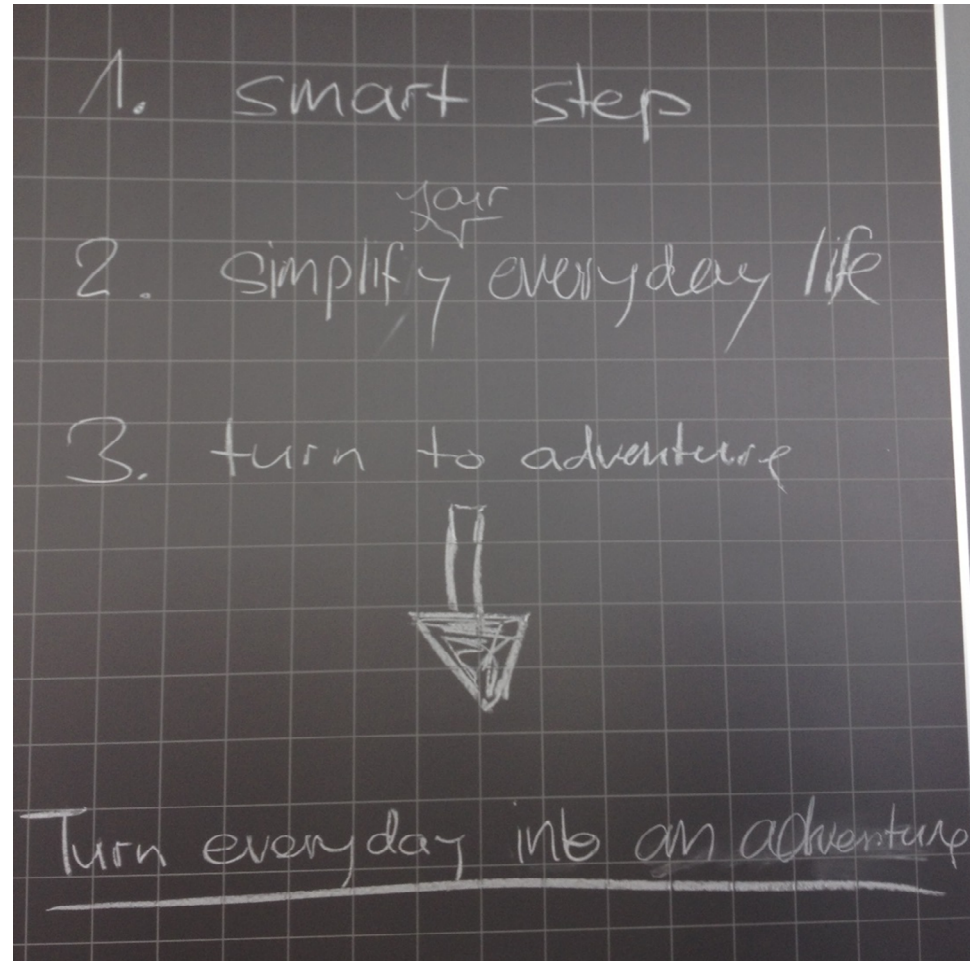 1. smart step
your
2. simplify everyday life
3. turn to adventure
Turn everyday into an adventure